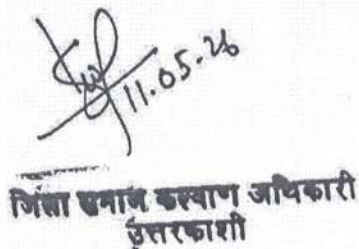 11.05.26
जिला समाज कल्याण अधिकारी
उत्तरकाशी